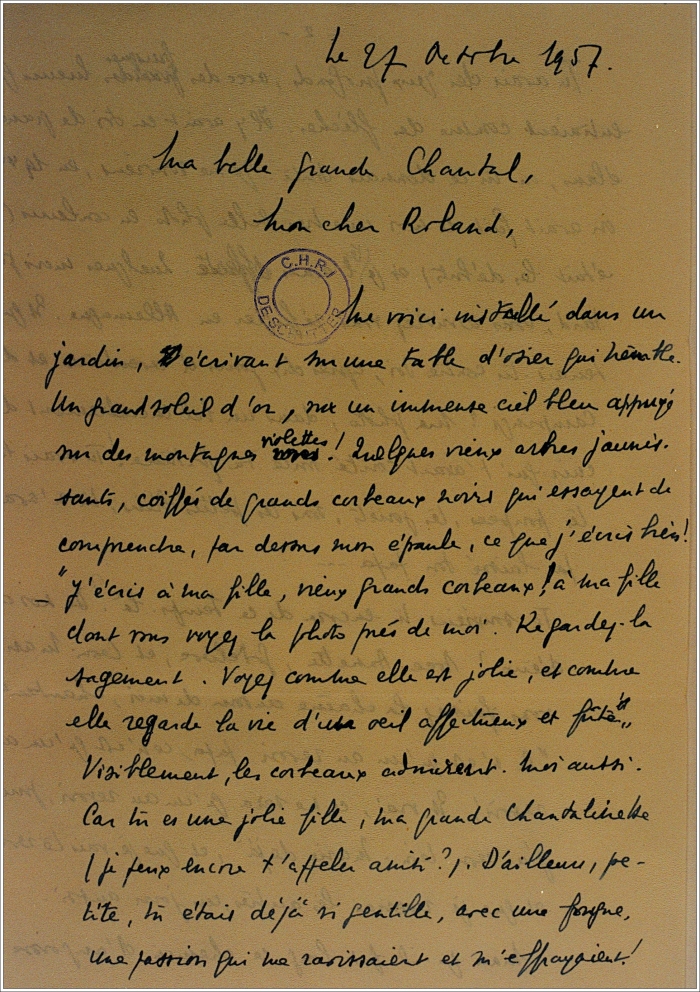 Le 27 Octobre 1957.
Ma belle grande Chantal,
Mon cher Roland,
C.H.R.I
DE SCHUTTER
Me voici installé dans un
jardin, écrivant sur une table d'osier qui tremble.
Un grand soleil d'or, sur un immense ciel bleu appuyé
sur des montagnes violettes ! Quelques vieux arbres jaunis-
sants, coiffés de grands corbeaux noirs qui essayent de
comprendre, par dessus mon épaule, ce que j'écris
_ "J'écris à ma fille, vieux grands corbeaux ! à ma fille
dont vous voyez la photo près de moi. Regardez-la
sagement. Voyez comme elle est jolie, et comme
elle regarde la vie d'un oeil affectueux et fûté"
Visiblement, les corbeaux admirent. Moi aussi.
Car tu es une jolie fille, ma grande Chantalinette
(je peux encore t'appeler ainsi ?). D'ailleurs, pe-
tite, tu étais déjà si gentille, avec une fougue,
une passion qui me ravissaient et m'effrayaient !